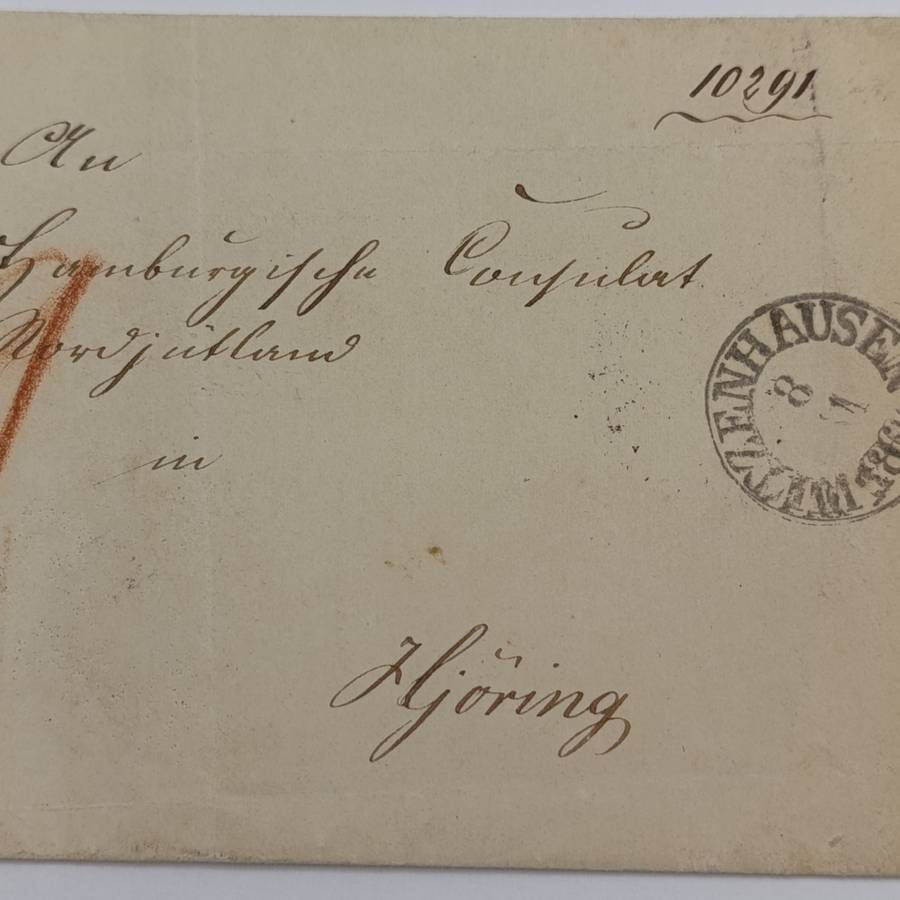 10291
An
Hamburgische Consulat
Nordjütland
in
Hjöring
WITZENHAUSEN
8 1